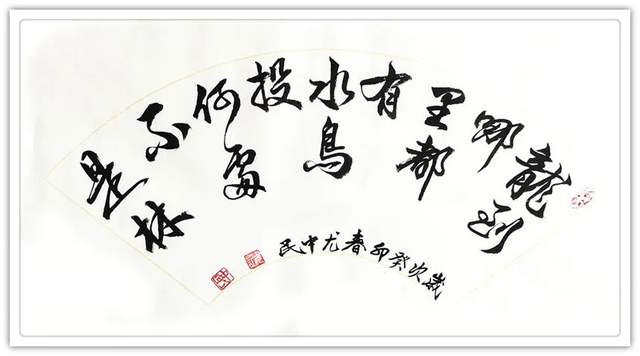 龍到
哪
里都
有
水鳥
投
何處
不
是林
歲次癸卯春尤中民